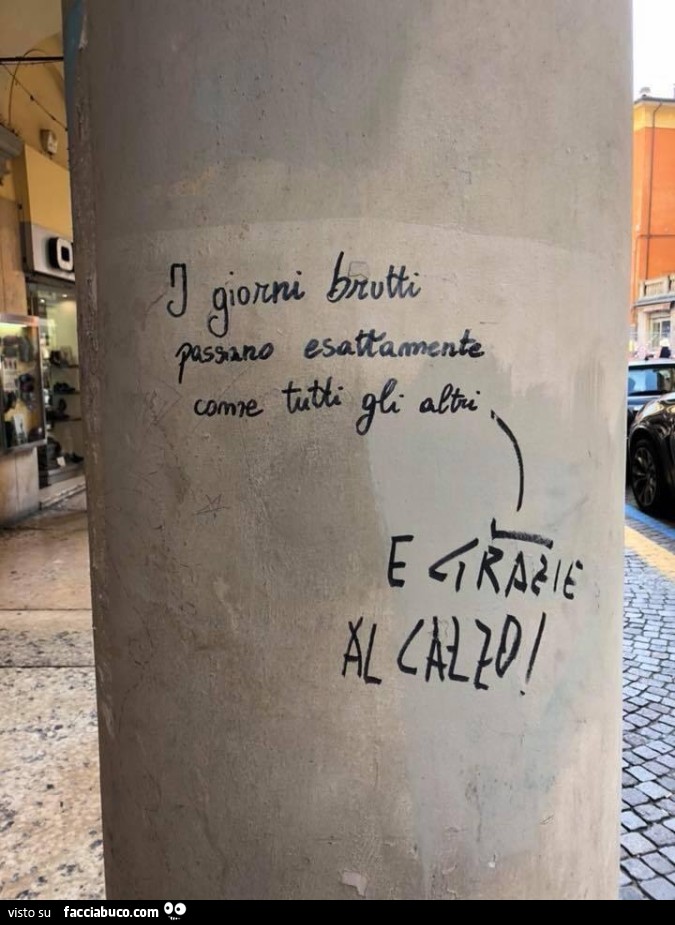 I giorni brutti
passano esattamente
come tutti gli altri
E GRAZIE
AL CAZZO!
visto su facciabuco.com